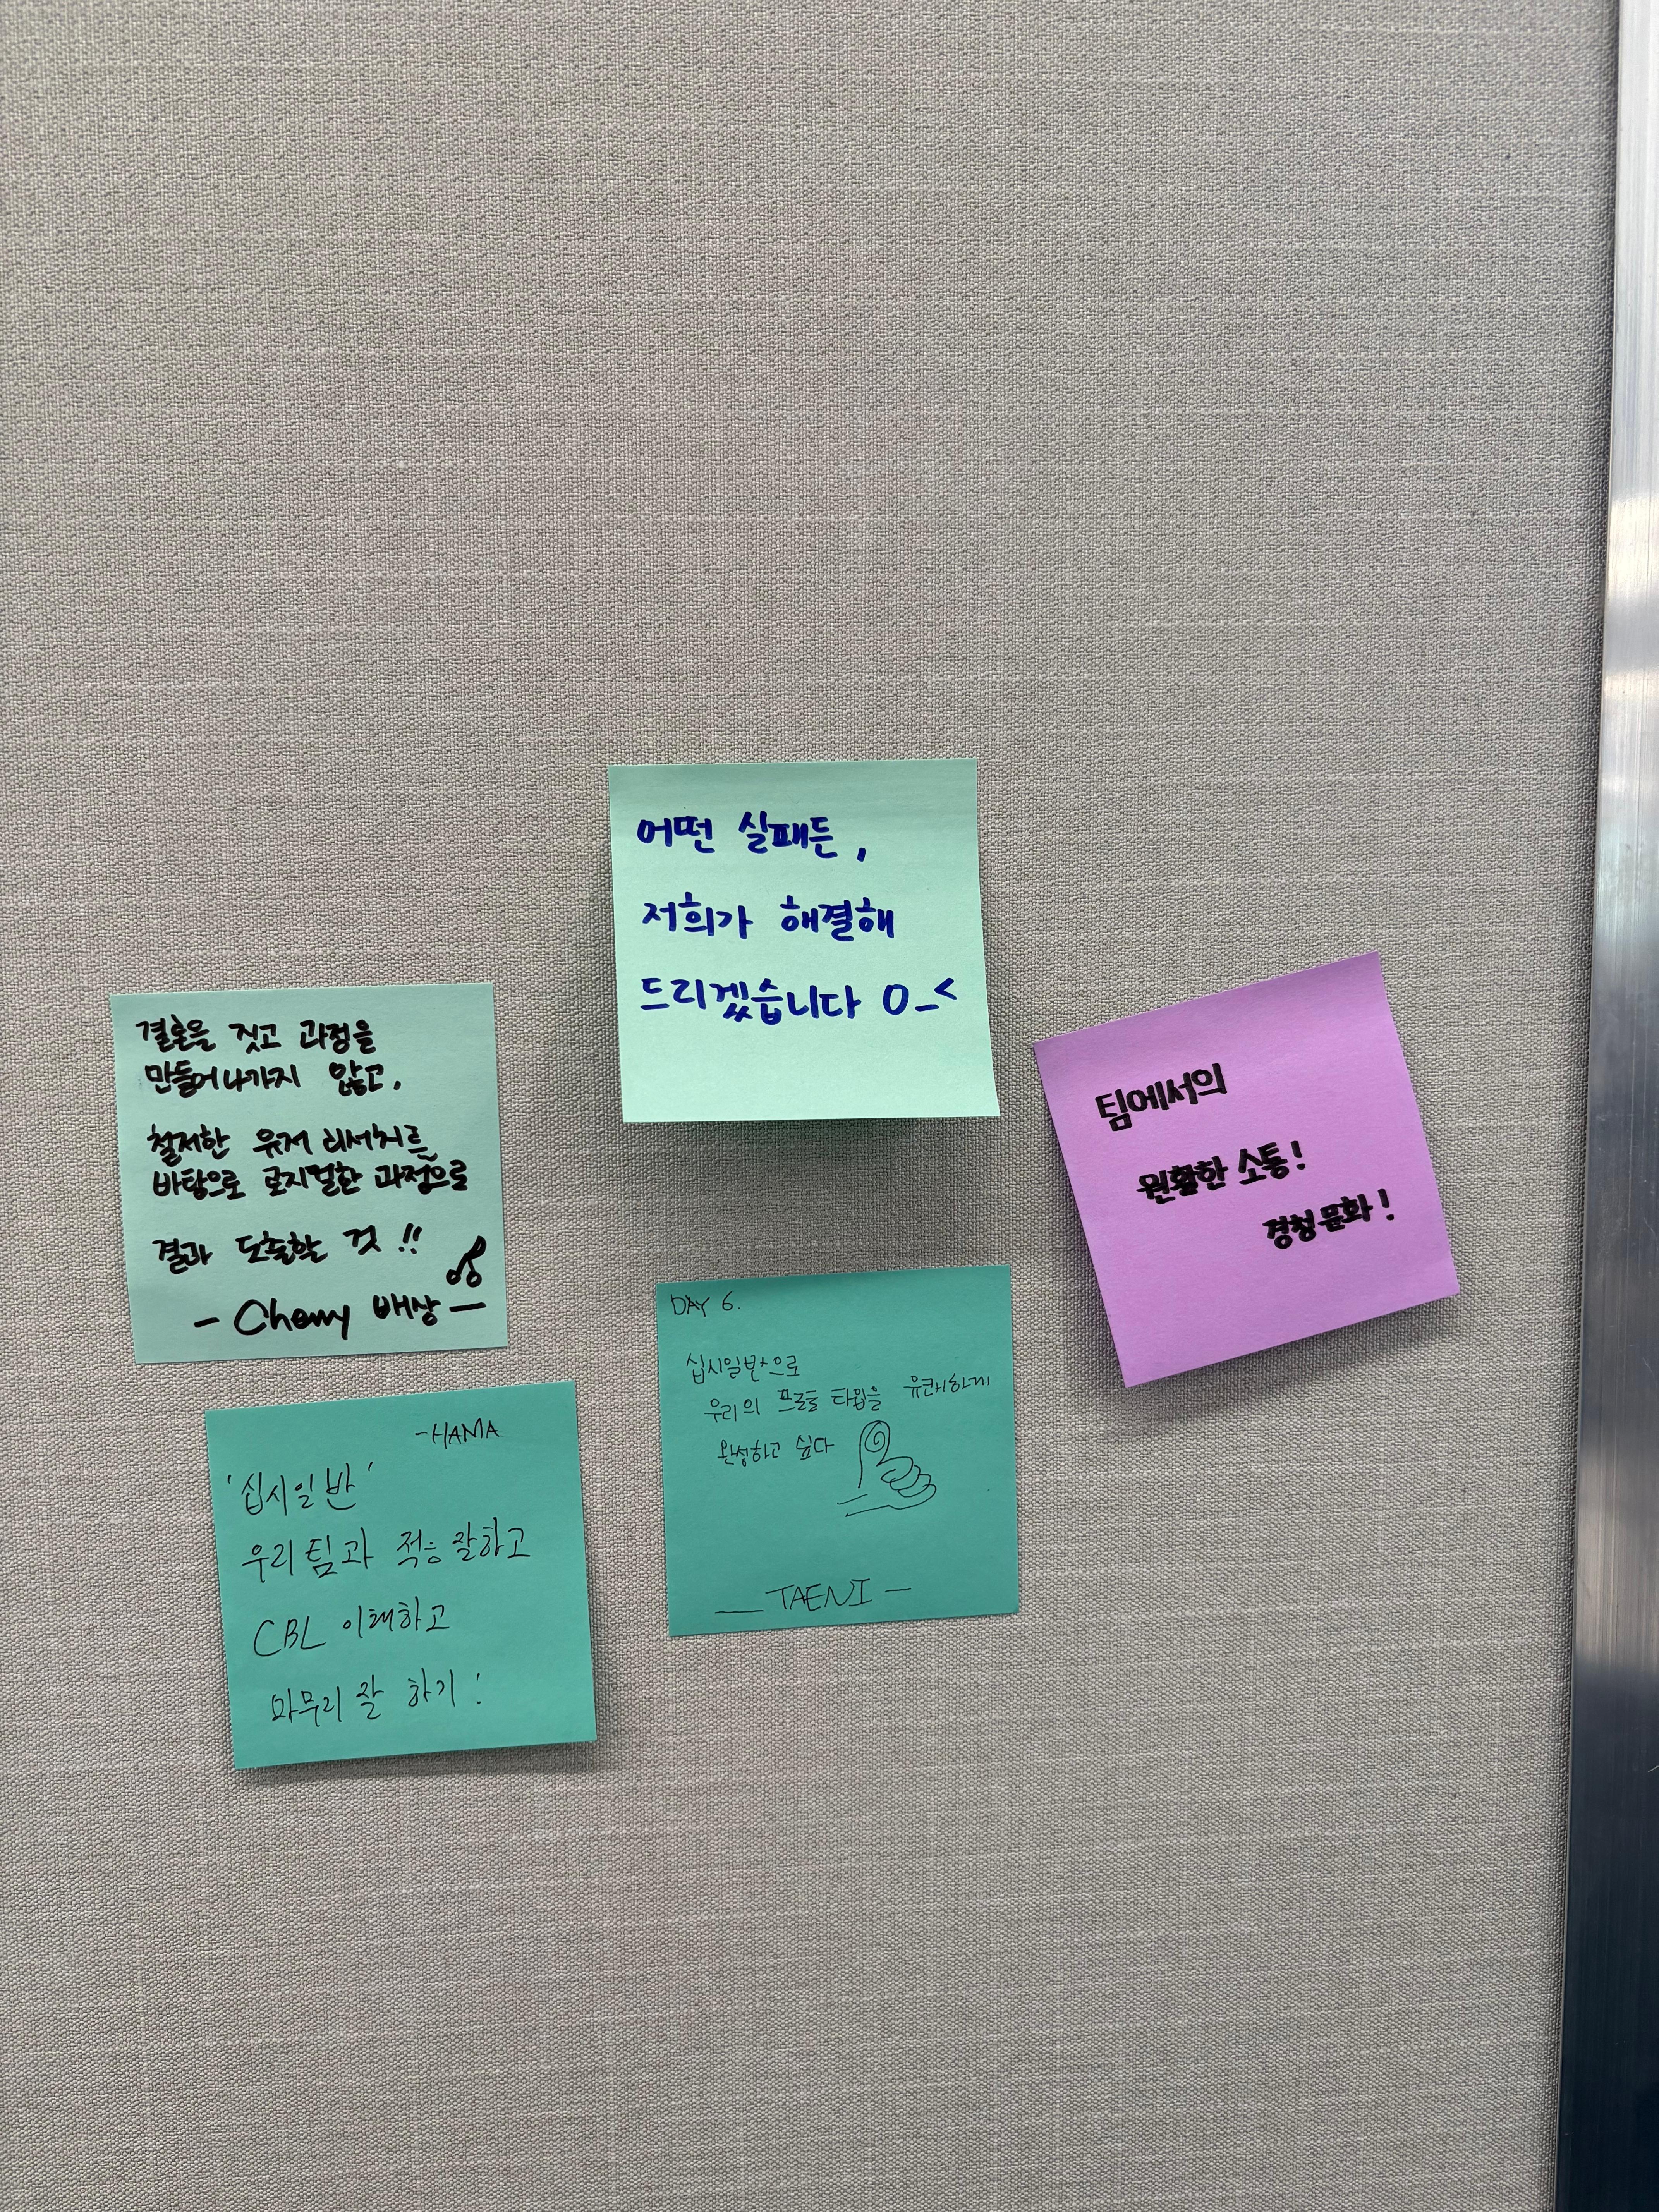 어떤 실패든,
저희가 해결해
드리겠습니다 O_<
결론을 짓고 과정을
만들어나가지 않고,
철저한 유저 리서치를
바탕으로 로지컬한 과정으로
결과 도출할 것!!
- Cherry 배상 -
팀에서의
원활한 소통!
경청 문화!
-HAMA
'십시일반'
우리 팀과 적응 잘하고
CBL 이해하고
마무리 잘 하기!
DAY 6.
십시일반으로
우리의 프로토 타입을 유쾌하게
완성하고 싶다
— TAENI —